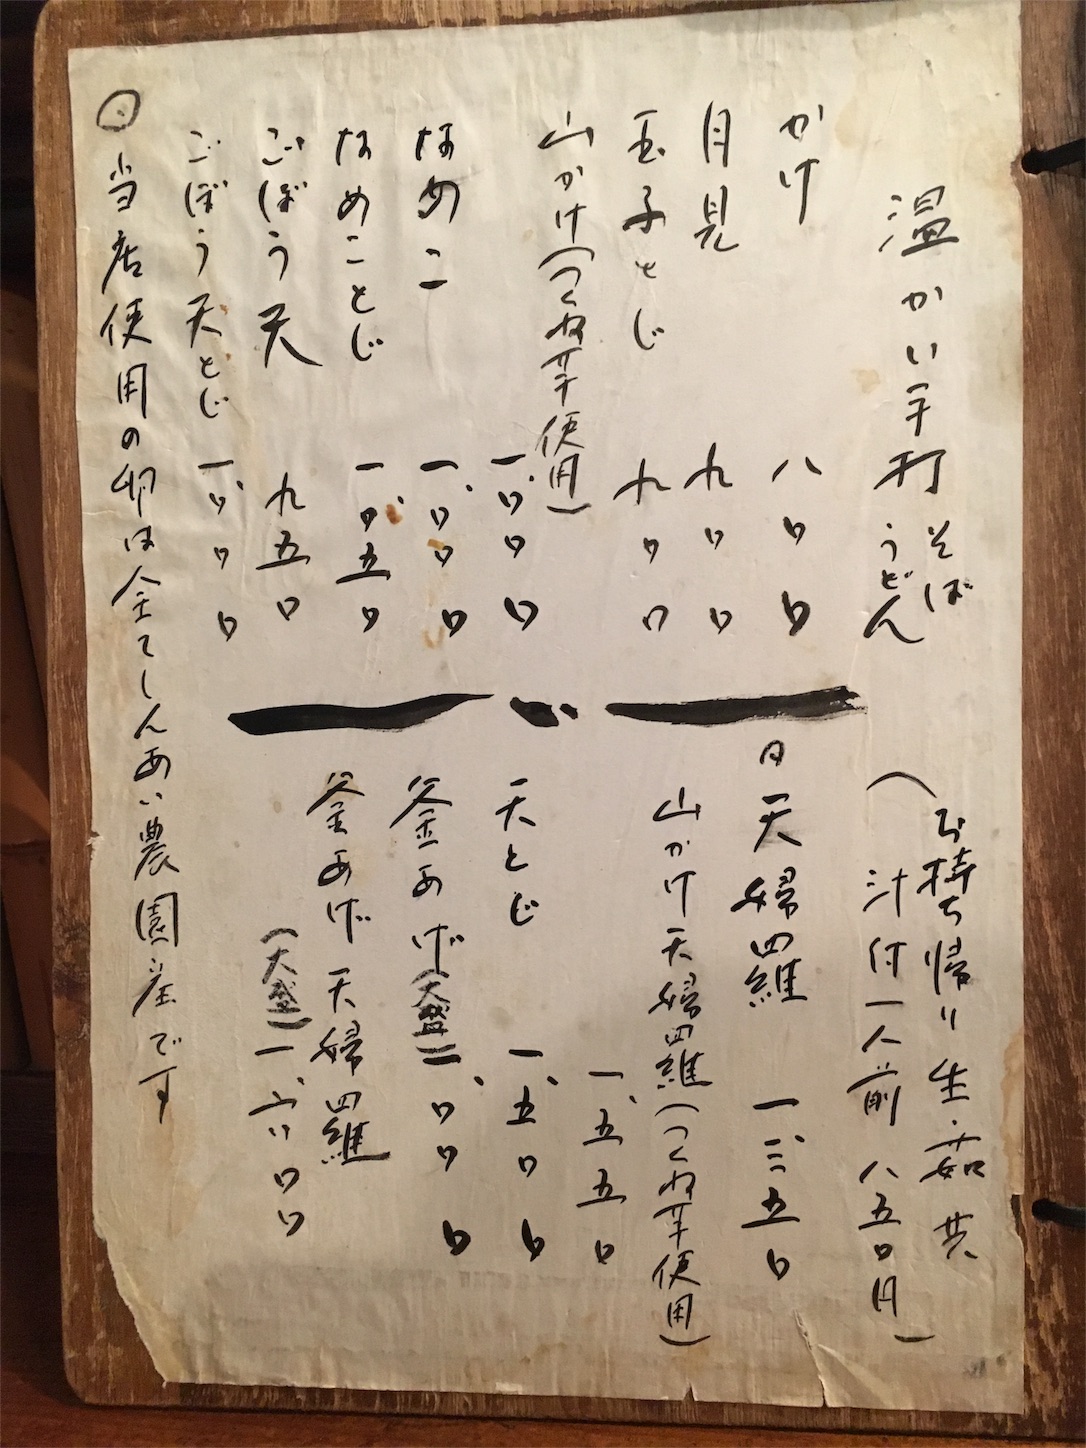 温かい手打 そば
うどん
(お持ち帰り生・茹共
汁付一人前 八五〇円)
かけ 八〇〇
月見 九〇〇
玉子とじ 九〇〇
山かけ(つくね芋使用)
一、〇〇〇
なめこ 一、〇〇〇
なめことじ 一、〇五〇
ごぼう天 九五〇
ごぼう天とじ 一、〇〇〇
天婦羅 一、三五〇
山かけ天婦羅(つくね芋使用)
一、五五〇
天とじ 一、五〇〇
釜あげ(大盛)一、〇〇〇
釜あげ天婦羅
(大盛)一、六〇〇
◎当店使用の卵は全てしんあい農園産です